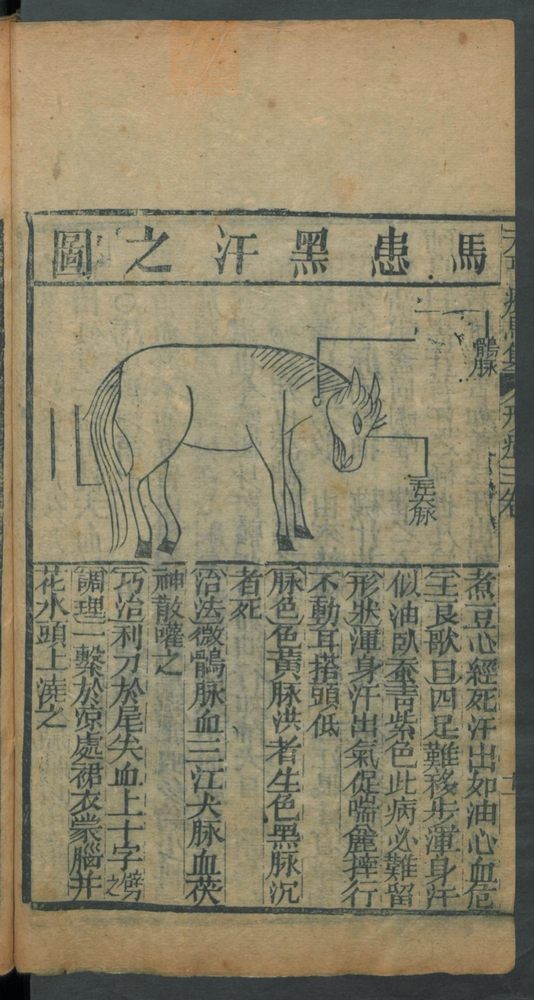 馬患黑汗之圖
鶻脉
煮豆心經死汗出如油心血危
王良歌曰四足難移步渾身汗
似油臥蚕青紫色此病必難留
形狀渾身汗出氣促喘麄摔行
不動耳搭頭低
脉色色黃脉洪者生色黑脉沉
者死
治法徹鶻脉血三江大脉血茯
神散嚾之
巧治利刀於尾尖血上十字劈之
調理一繫於凉處裙衣蒙腦井
花水頭上澆之